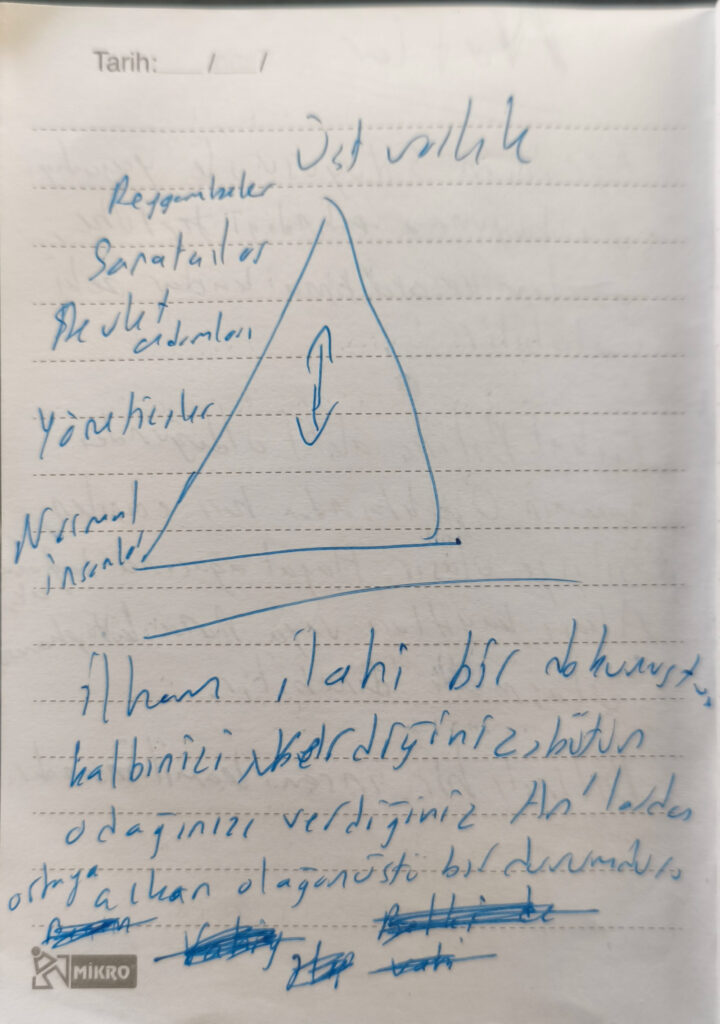 Tarih: / /
Üst varlık
Peygamberler
Sanatçılar
Devlet
adamları
Yöneticiler
Normal
insanlar
ilham, ilahi bir dokunuştur,
kalbinizi verdiğiniz, bütün
odağınızı verdiğiniz An'lardan
ortaya çıkan olağanüstü bir durumdur.
Belki de
vahi
MİKRO